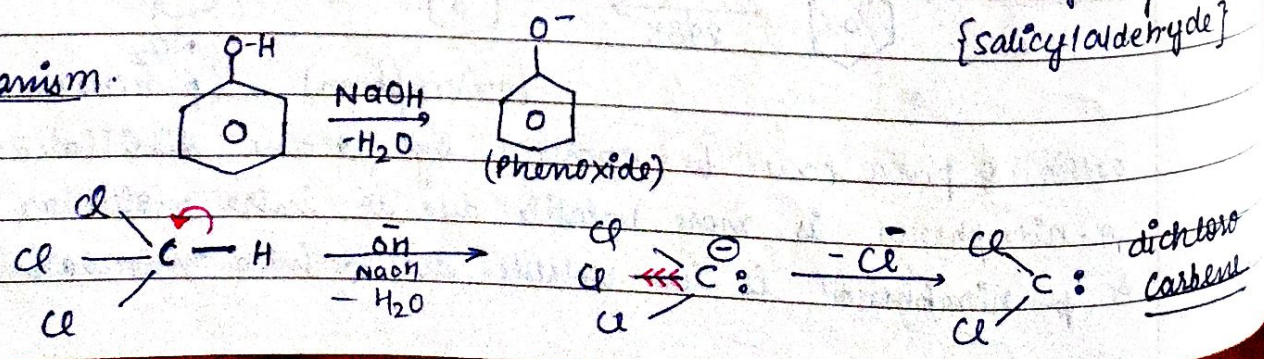 {Salicylaldehyde}
anism.
O-H
NaOH
-H₂O
O⁻
(Phenoxide)
Cl
Cl — C — H
Cl
ŌH
NaOH
- H₂O
Cl
Cl C:
⊖
Cl
- Cl⁻
Cl
C:
Cl
dichloro
carbene